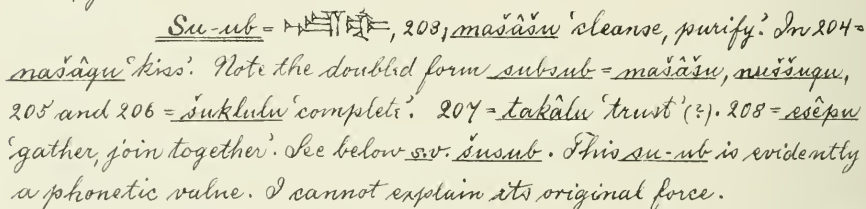 Su-ub = 203, mašâšu 'cleanse, purify'. In 204 =
našâqu 'kiss'. Note the doubled form subsub = mašâšu, nuššuqu,
205 and 206 = šuklulu 'complete'. 207 = takâlu 'trust' (?). 208 = esêpu
'gather, join together'. See below s.v. šusub. This su-ub is evidently
a phonetic value. I cannot explain its original force.